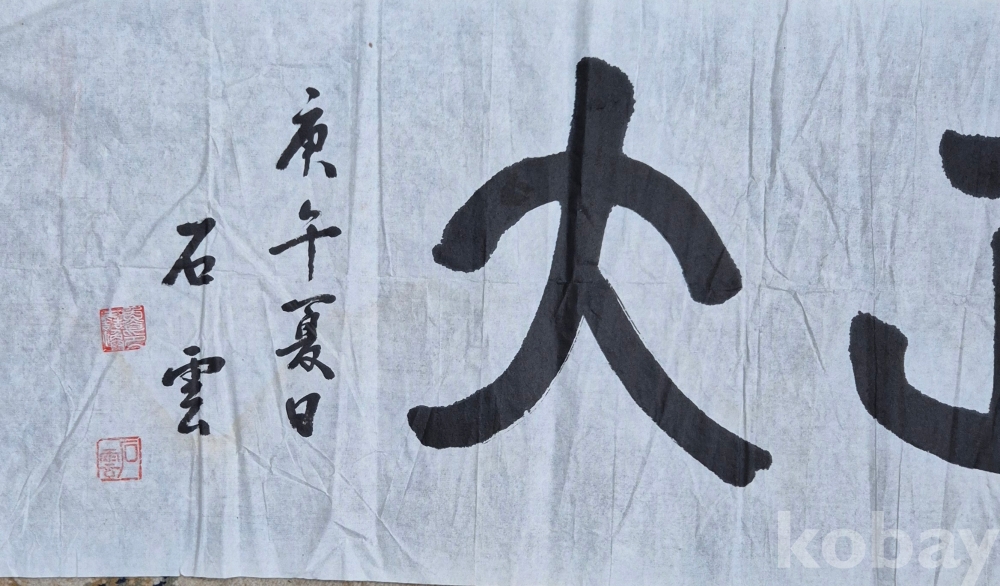 大
庚午夏日
石雲
石雲
kobay